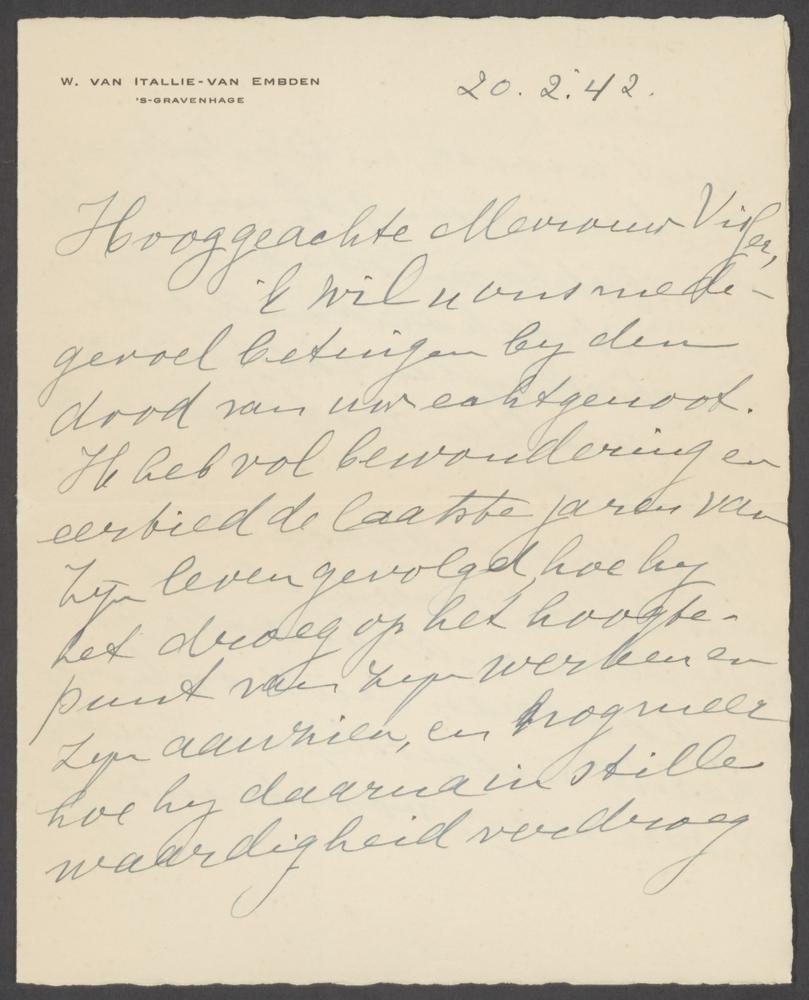 W. VAN ITALLIE-VAN EMBDEN
'S-GRAVENHAGE
20. 2. 42.
Hooggeachte Mevrouw Visser,
Ik wil u ons mede-
gevoel betuigen by den
dood van uw echtgenoot.
Ik heb vol bewondering en
eerbied de laatste jaren van
zyn leven gevolgd, hoe hy
het droeg op het hoogte-
punt van zyn werken en
zyn aanzien, en nog meer
hoe hy daarna in stille
waardigheid verdroeg